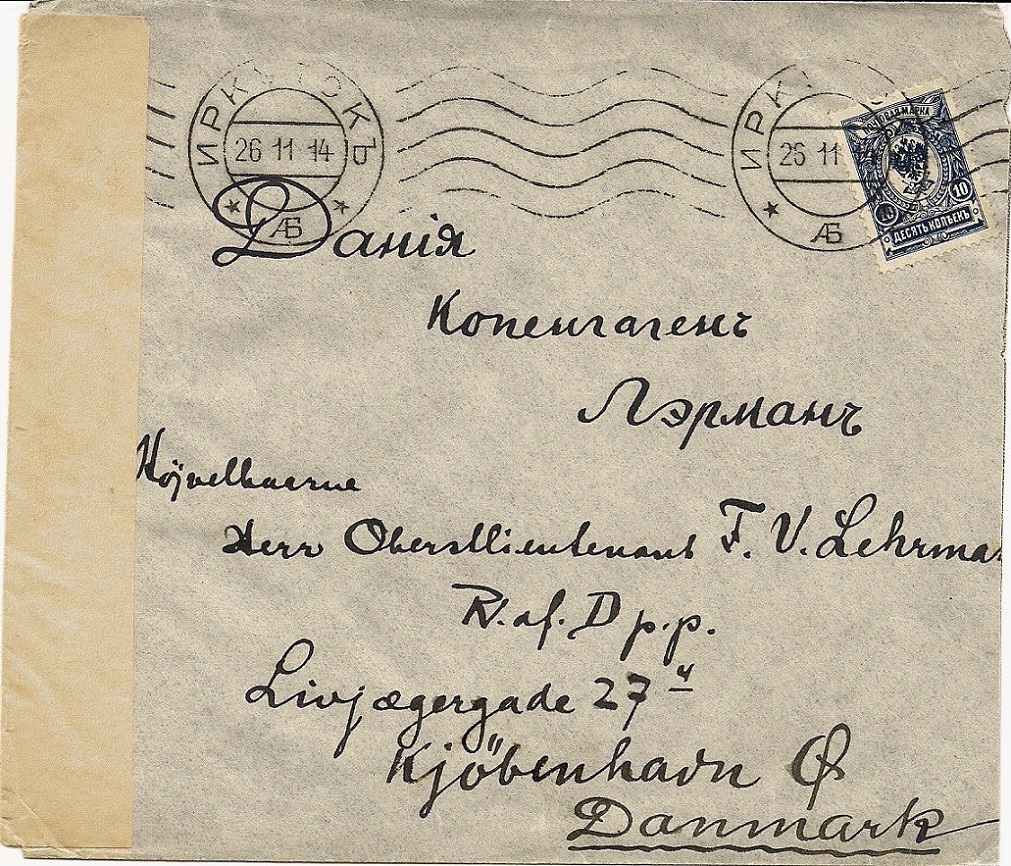 ИРКУТСКЪ
26 11 14
АБ
ИРКУ
25 11
АБ
ПОЧТОВАЯ МАРКА
10 10
ДЕСЯТЬ КОПѢЕКЪ
Данія
Копенгагенъ
Лэрманъ
Höjvelbaarne
Herr Oberstlieutenant F. V. Lehrma
R. af. D p.p.
Livjægergade 27 4
Kjöbenhavn Ø
Danmark